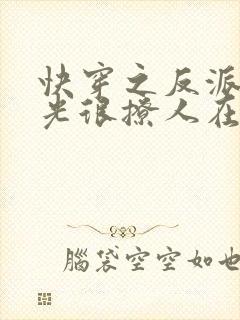 快穿之反派
光很撩人在
腦袋空空如也